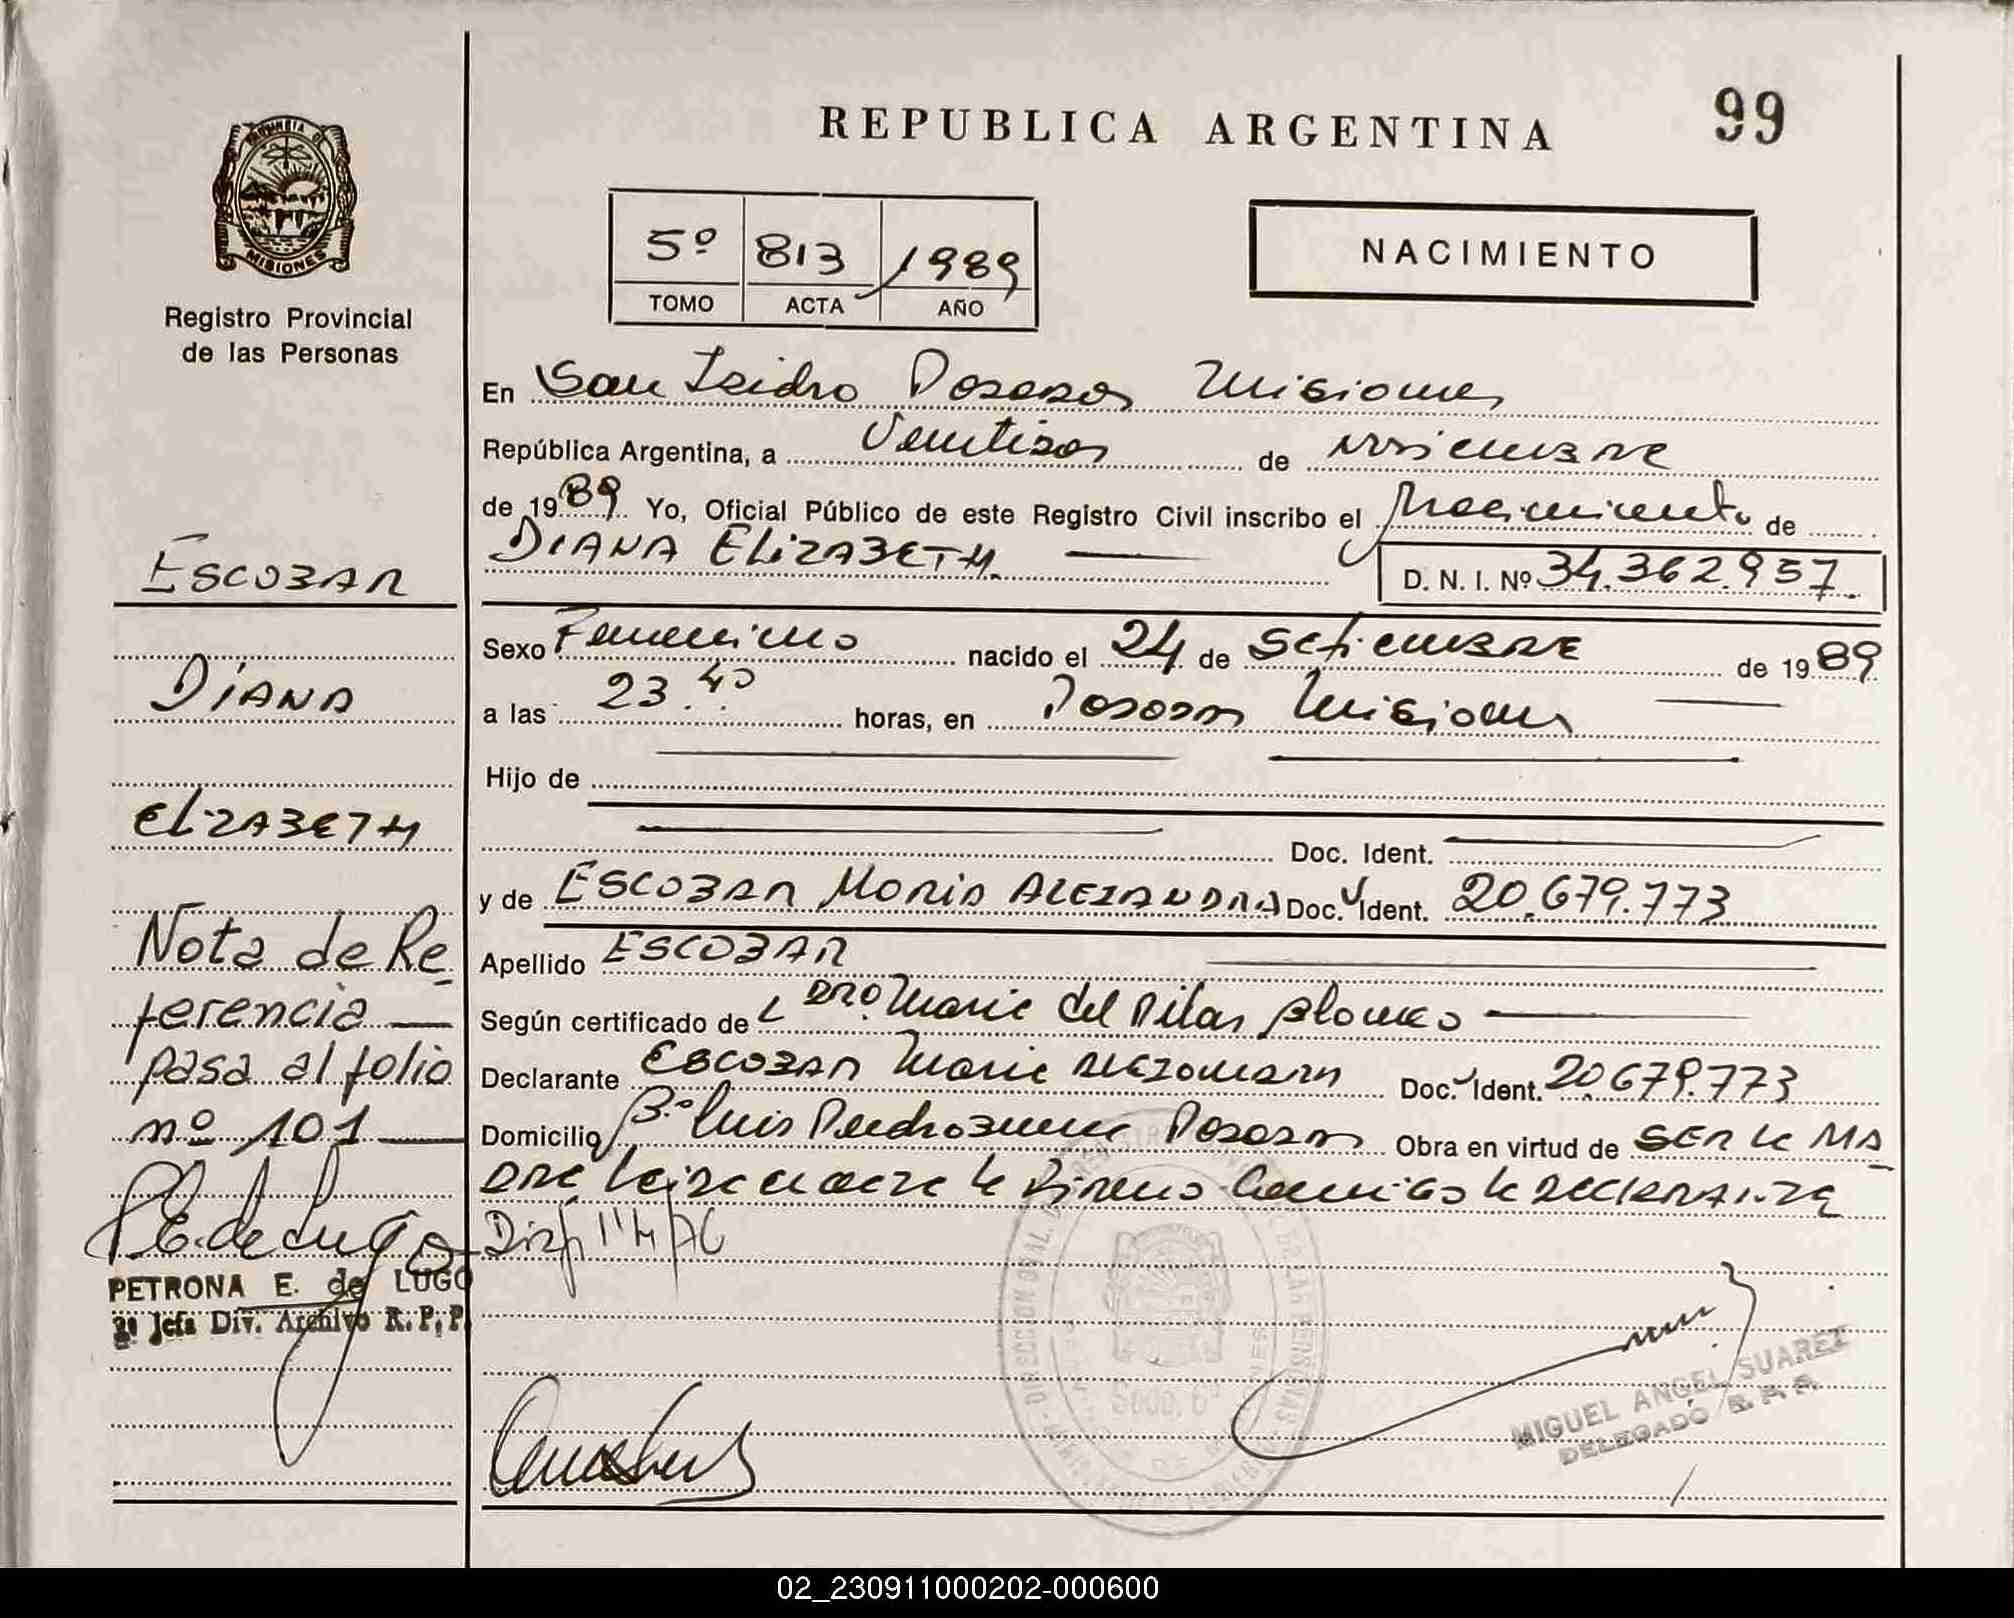 PROVINCIA DE
MISIONES
Registro Provincial
de las Personas
ESCOBAR
DIANA
ELIZABETH
Nota de Re-
ferencia —
pasa al folio
nº 101 —
PETRONA E. de LUGO
Jefa Div. Archivo R. P. P.
REPUBLICA ARGENTINA 99
5º 813 1989
TOMO ACTA AÑO
NACIMIENTO
En San Isidro Posadas Misiones
República Argentina, a Ventidos de noviembre
de 1989 Yo, Oficial Público de este Registro Civil inscribo el Nacimiento de
DIANA ELIZABETH. — D. N. I. Nº 34.362.957.
Sexo Femenino nacido el 24 de SETIEMBRE de 1989
a las 23.40 horas, en Posadas Misiones —
Hijo de
Doc. Ident.
y de ESCOBAR MARIA ALEJANDRA Doc. Ident. 20.679.773
Apellido ESCOBAR
Según certificado de Maria del Pilar —
Declarante ESCOBAR Maria ALEJANDRA Doc. Ident. 20.679.773
Domicilio Bº Luis Posadas Obra en virtud de SER LA MA-
DRE
MIGUEL ANGEL SUAREZ
DELEGADO R. P. P.
02_230911000202-000600